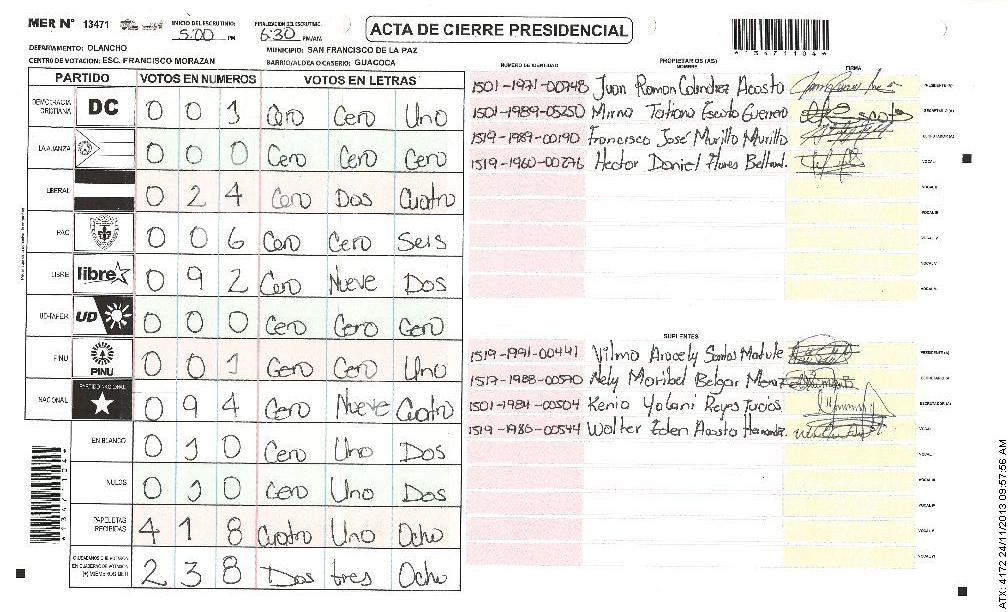 MER N° 13471 INICIO DEL ESCRUTINIO: 5:00 PM FINALIZACION DEL ESCRUTINIO: 6:30 PM/AM ACTA DE CIERRE PRESIDENCIAL
DEPARTAMENTO: OLANCHO MUNICIPIO: SAN FRANCISCO DE LA PAZ
CENTRO DE VOTACION: ESC. FRANCISCO MORAZAN BARRIO/ALDEA O CASERIO: GUACOCA
PARTIDO VOTOS EN NUMEROS VOTOS EN LETRAS
DEMOCRACIA CRISTIANA DC 0 0 1 Cero Cero Uno
LA ALIANZA 0 0 0 Cero Cero Cero
LIBERAL 0 2 4 Cero Dos Cuatro
PAC 0 0 6 Cero Cero Seis
LIBRE libre 0 9 2 Cero Nueve Dos
UD-FAPER UD 0 0 0 Cero Cero Cero
PINU PINU 0 0 1 Cero Cero Uno
NACIONAL PARTIDO NACIONAL 0 9 4 Cero Nueve Cuatro
EN BLANCO 0 1 0 Cero Uno Dos
NULOS 0 1 0 Cero Uno Dos
PAPELETAS RECIBIDAS 4 1 8 Cuatro Uno Ocho
CIUDADANOS QUE VOTARON EN CUADERNO DE VOTACION (+) MIEMBROS MER 2 3 8 Dos tres Ocho
*1347104*
NUMERO DE IDENTIDAD PROPIETARIOS (AS) NOMBRE FIRMA
1501-1971-00748 Juan Ramon Colindrez Acosta PRESIDENTE (A)
1501-1989-05250 Mirna Tatiana Escoto Guerrero SECRETARIO (A)
1519-1989-00190 Francisco José Murillo Murillo ESCRUTADOR (A)
1519-1960-00276 Hector Daniel Flores Beltrand. VOCAL I
VOCAL II
VOCAL III
VOCAL IV
VOCAL V
VOCAL VI
SUPLENTES
1519-1991-00441 Vilma Aracely Santos PRESIDENTE (A)
1517-1988-00570 Nely Maribel Belgar SECRETARIO (A)
1501-1984-00504 Kenia Yolani Reyes ESCRUTADOR (A)
1519-1986-00544 Walter Eden Acosta Hernandez. VOCAL I
VOCAL II
VOCAL III
VOCAL IV
VOCAL V
VOCAL VI
*1347104*
ATX: 4172 24/11/2013 09:57:56 AM